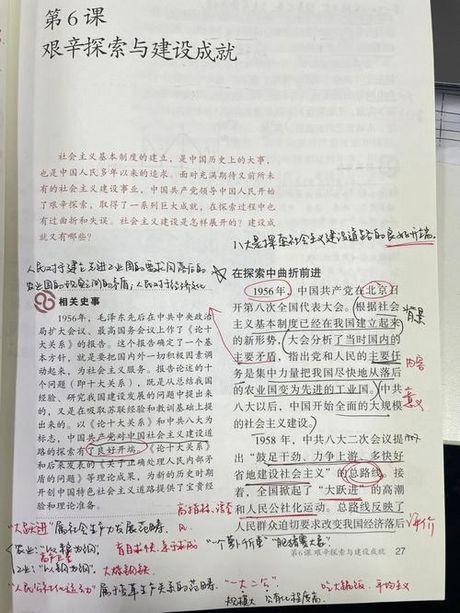 第6课
艰辛探索与建设成就
社会主义基本制度的建立，是中国历史上的大事，
也是中国人民多年以来的追求。面对充满期待又前所未
有的社会主义建设事业，中国共产党领导中国人民开始
了艰辛探索，取得了一系列巨大成就，在探索过程中也
有过曲折和失误。社会主义建设是怎样展开的？建设成
就又有哪些？
八大是探索社会主义建设道路的良好开端。
人民对于建立先进工业国的要求同落后的
农业国的现实之间的矛盾，人民对于经济文化
相关史事
1956年，毛泽东先后在中共中央政治
局扩大会议、最高国务会议上作了《论十
大关系》的报告。这个报告确定了一个基
本方针，就是要把国内外一切积极因素调
动起来，为社会主义服务。报告论述的十
个问题（即十大关系），既是从总结我国
经验、研究我国建设发展的问题中提出来
的，又是在吸取苏联经验和教训基础上提
出来的。以《论十大关系》和中共八大为
标志，中国共产党对中国社会主义建设道
路的探索有了良好开端。《论十大关系》
和后来发表的《关于正确处理人民内部矛
盾的问题》等理论成果，为新的历史时期
开创中国特色社会主义道路提供了宝贵经
验和理论准备。
在探索中曲折前进
1956年，中国共产党在北京召
开第八次全国代表大会。根据社会
主义基本制度已经在我国建立起来
的新形势，大会分析了当时国内的
主要矛盾，指出党和人民的主要任
务是集中力量把我国尽快地从落后
的农业国变为先进的工业国。中共
八大以后，中国开始全面的大规模
的社会主义建设。
1958年，中共八大二次会议提
出“鼓足干劲、力争上游、多快好
省地建设社会主义”的总路线。接
着，全国掀起了“大跃进”的高潮
和人民公社化运动。总路线反映了
人民群众迫切要求改变我国经济落后
背景
内容
意义
评价
高指标
“大跃进”属社会生产力发展范畴。
农业：“以粮为纲”
工业：“以钢为纲” 大炼钢铁
“人民公社化运动”属于变革生产关系的范畴。
“一大二公”
规模大 公有化程度高
吃大锅饭，平均主义
第6课 艰辛探索与建设成就 27